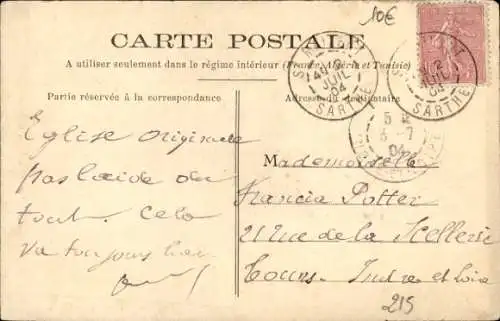 10€
CARTE POSTALE
A utiliser seulement dans le régime intérieur (France, Algérie et Tunisie)
Partie réservée à la correspondance
Adresse du destinataire
JUIL
04
SARTHE
2
JUIL
04
SARTHE
5
3-7
04
Eglise originale
pas laide du
tout. Cela
va toujours bien
Mademoiselle
Francia Potter
21 Rue de la Scellerie
Tours. Indre et Loire
215